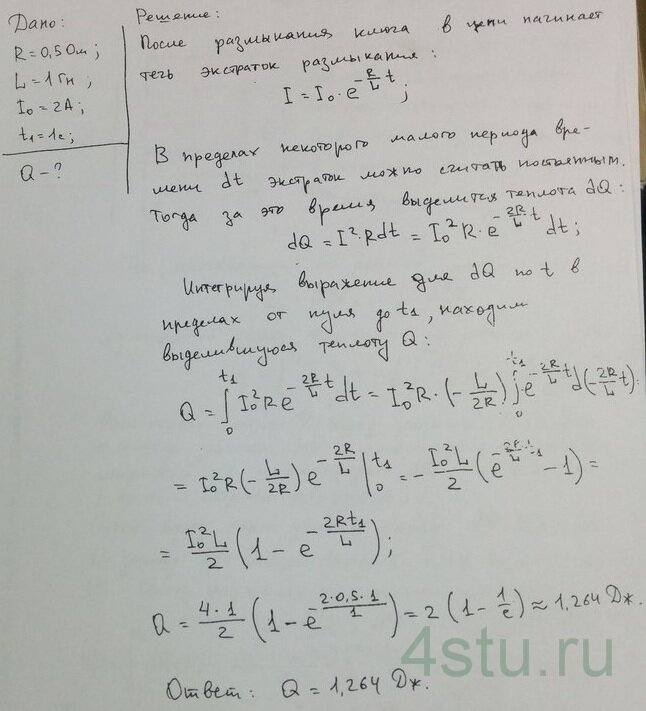 Дано:
R = 0,5 Ом;
L = 1 Гн;
I₀ = 2А;
t₁ = 1с;
Q - ?
Решение:
После размыкания ключа в цепи начинает
течь экстраток размыкания:
I = I₀ · e^(-R/L t);
В пределах некоторого малого периода вре-
мени dt экстраток можно считать постоянным.
Тогда за это время выделится теплота dQ:
dQ = I² · R dt = I₀² R · e^(-2R/L t) dt;
Интегрируя выражение для dQ по t в
пределах от нуля до t₁, находим
выделившуюся теплоту Q:
Q = ∫₀^t₁ I₀² R e^(-2R/L t) dt = I₀² R · (-L/2R) ∫₀^t₁ e^(-2R/L t) d(-2R/L t) =
= I₀² R (-L/2R) e^(-2R/L) |₀^t₁ = - I₀² L/2 (e^(-2R/L t₁) - 1) =
= I₀² L/2 (1 - e^(-2Rt₁/L));
Q = 4·1/2 (1 - e^(-2·0,5·1/1)) = 2 (1 - 1/e) ≈ 1,264 Дж.
4stu.ru
Ответ: Q = 1,264 Дж.